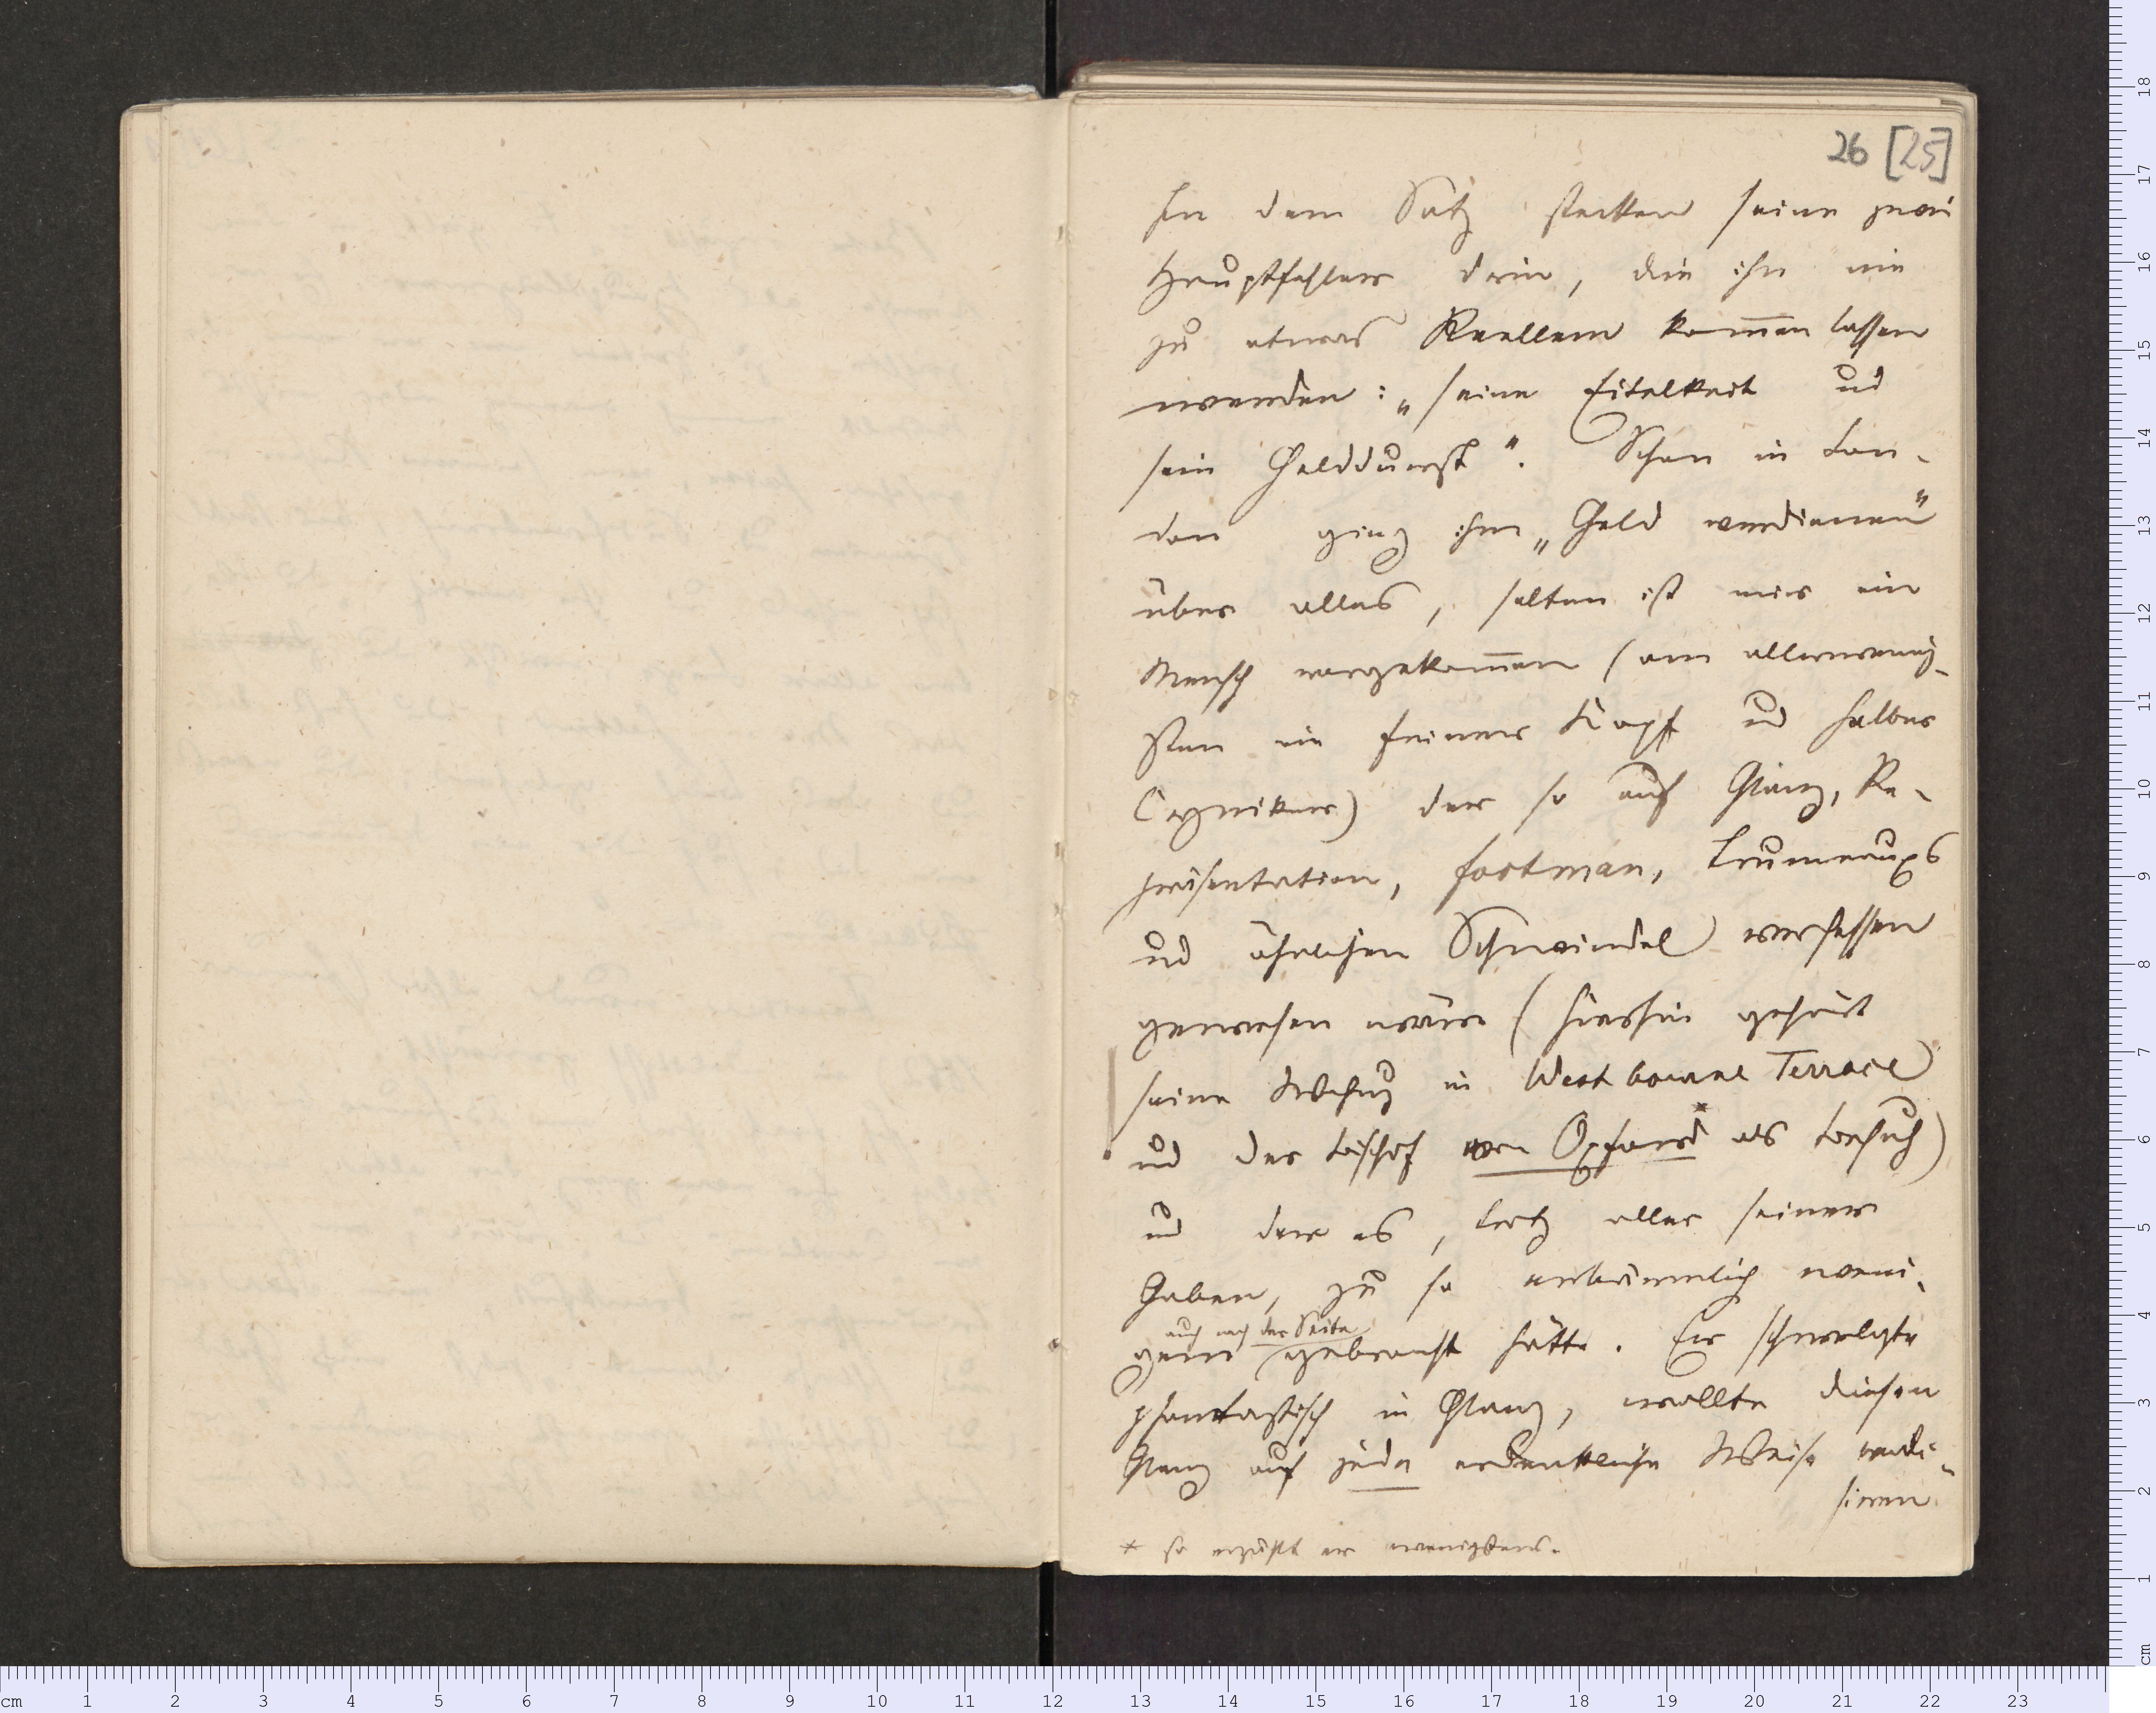 26 [25]
In dem Satz stecken seine zwei
Hauptfehler drin, die ihn nie
zu etwas Reellem kom̅en lassen
werden: „seine Eitelkeit und
sein Gelddurst". Schon in Lon-
don ging ihm „Geld verdienen"
über alles, selten ist mir ein
Mensch vorgekom̅en (am allerwenig-
sten ein feiner Kopf und halber
Cyniker) der so auf Glanz, Re-
präsentation, footman, Trumeaux
und ähnlichen Schwindel versessen
gewesen wäre (hierhin gehört
seine Wohnung in Westbourne Terrace
und der Bischof von Oxford* als Besuch)
und der es, trotz aller seiner
Gaben, zu so erbärmlich weni-
auch nach der Seite
gem gebracht hätte. Er schwelgte
phantastisch in Glanz, wollte diesen
Glanz auf jede erdenkliche Weise reali-
siren
* so erzählt er wenigstens.